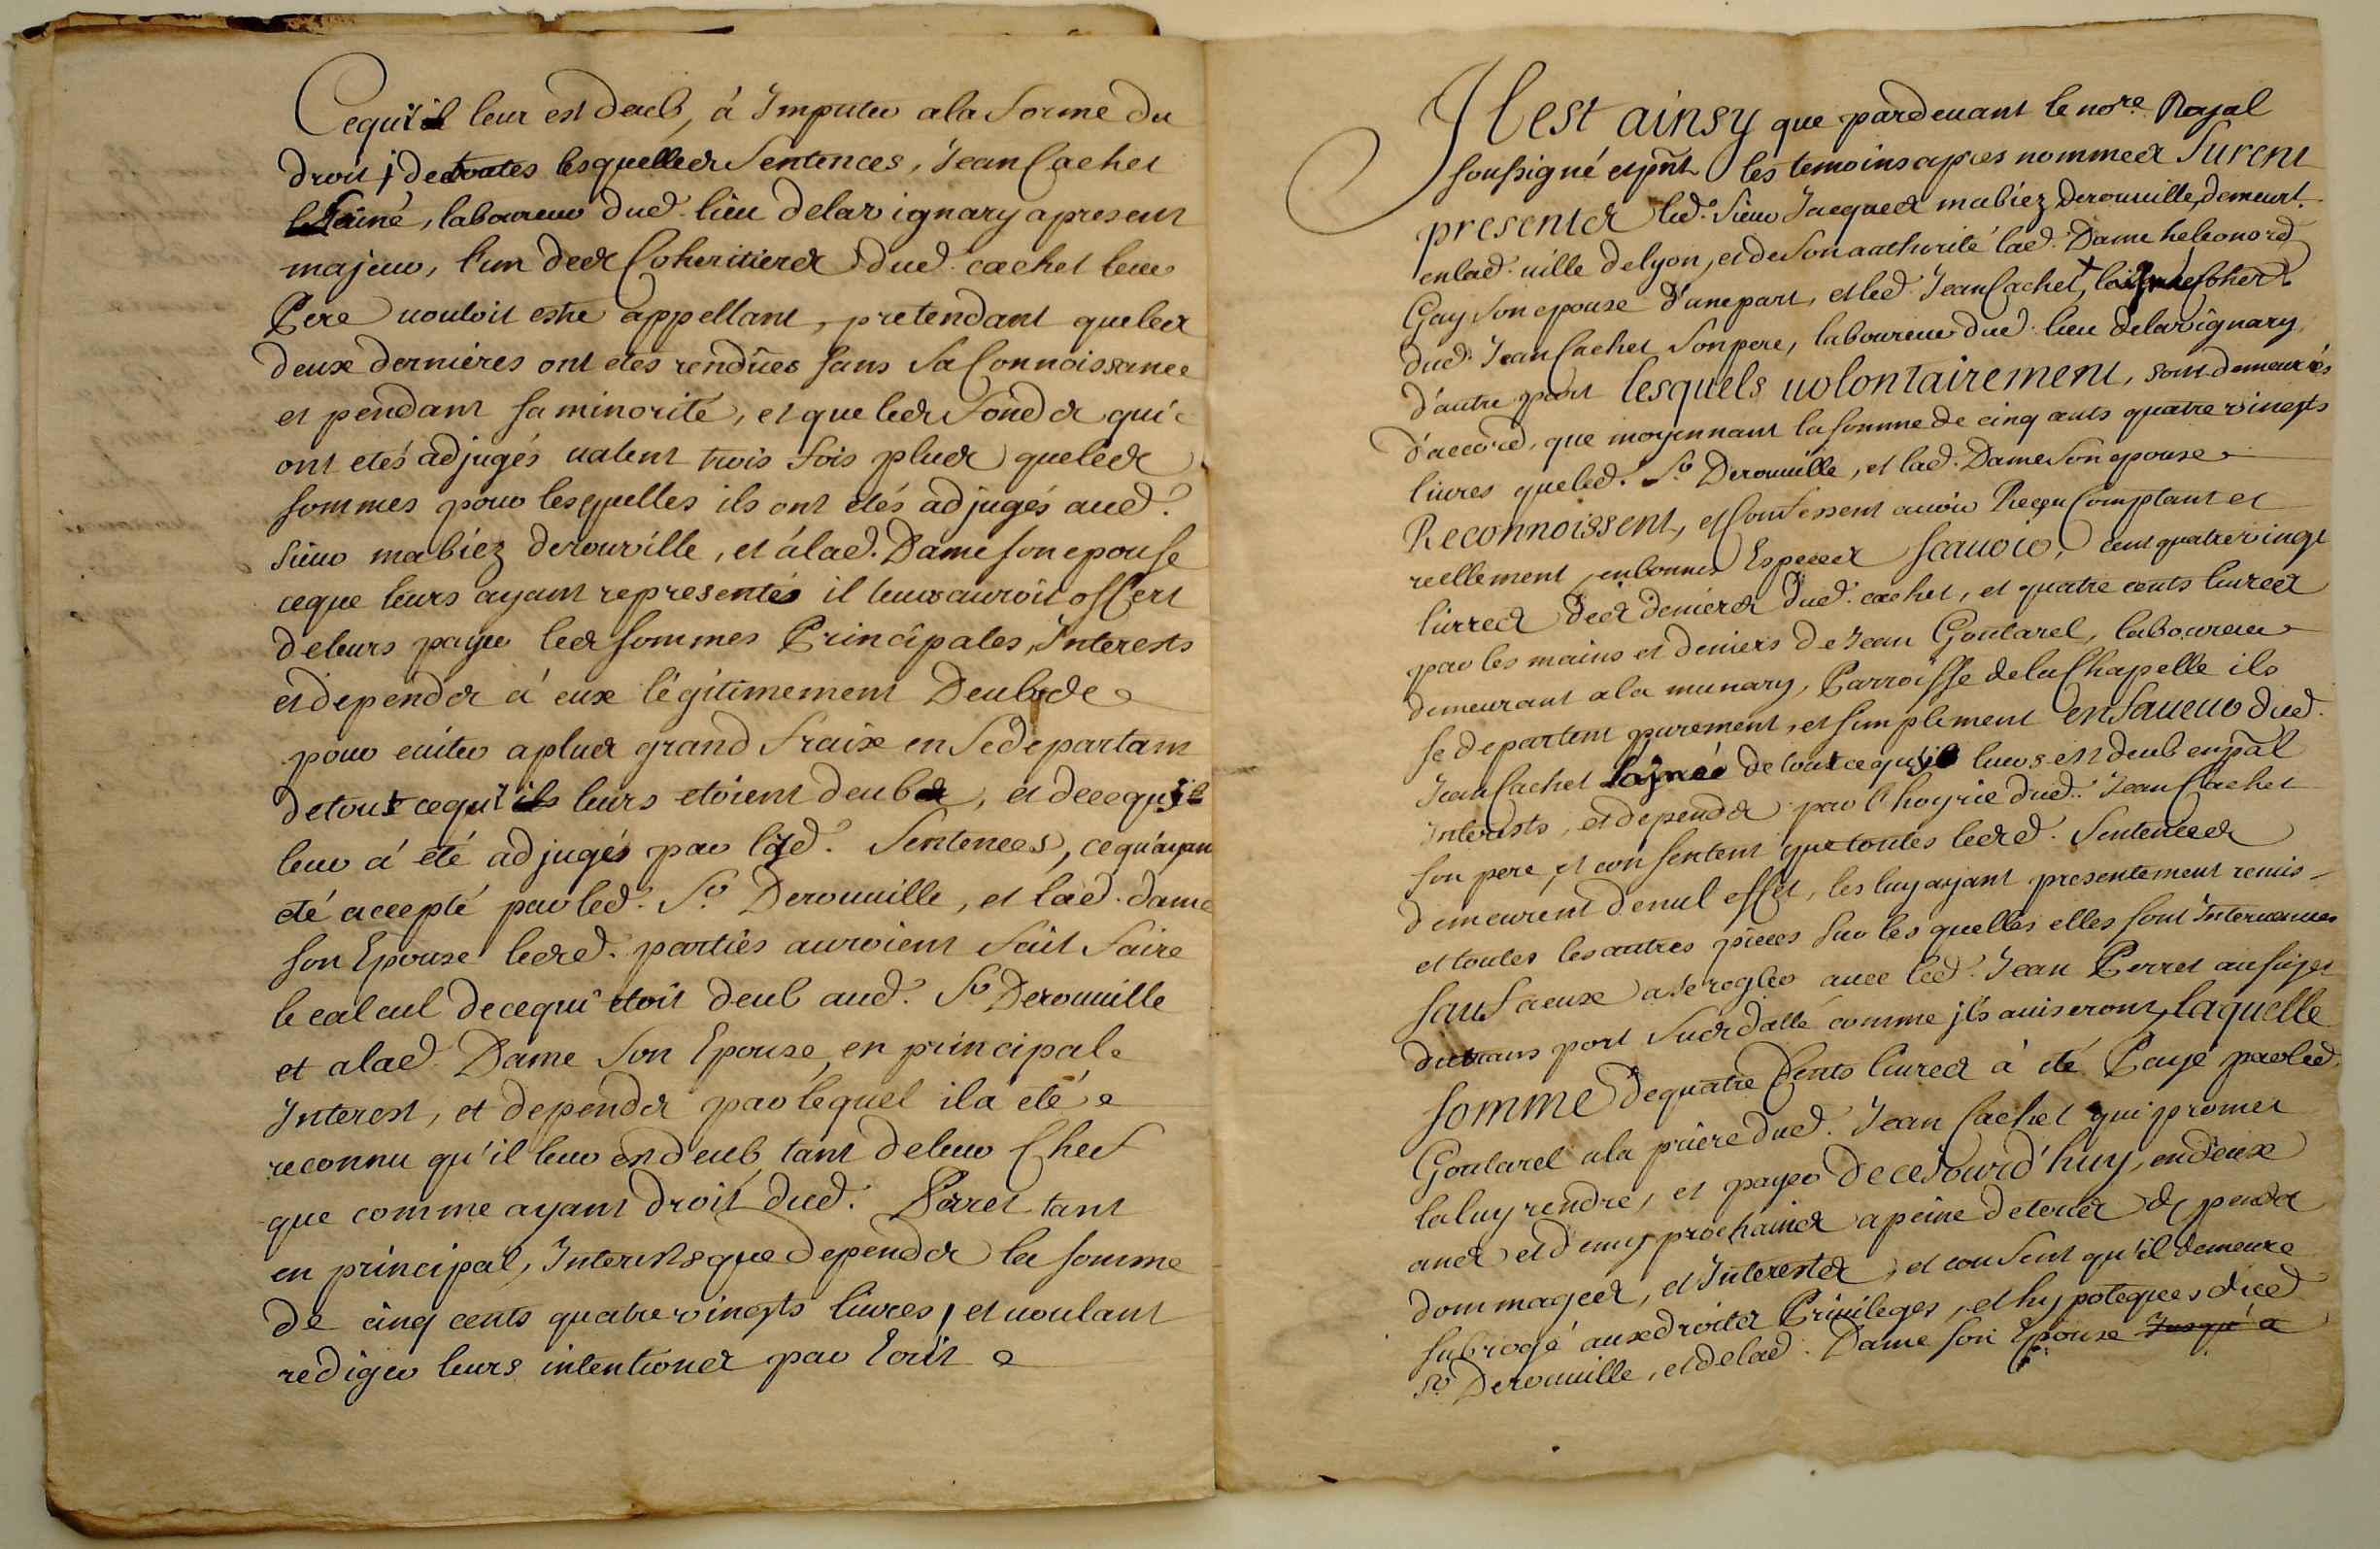 Cequ'il leur est deub, à Imputer a la forme du
droit; de toutes lesquelles Sentences, Jean Cachet
l'aîné, laboureur dud. lieu de lavignary a present
majeur, l'un des Coheritiers dud. cachet leur
Pere vouloit estre appellant, pretendant que les
deux dernières ont etés rendües sans sa Connoissance
et pendant sa minorité, et que les fonds qui
ont etés adjugés valent trois fois plus que les
sommes pour lesquelles ils ont étés adjugés aud.
Sieur mabiez derouville, et à lad. Dame son epouse
ceque leurs ayant representés il leurs auroit offert
de leurs payer les sommes Principales, Interests
et depends à eux légitimement Deubs de
pour eviter a plus grand fraix en se departant
de tout cequ'ils leurs etoient deubs, et de cequ'il
leur à été adjugés par lesd. Sentences, ce qu'ayant
été accepté par led. Sr. Derouville, et lad. dame
son Epouse lesd. parties auroient fait faire
le calcul de cequi etoit deub aud. Sr Derouville
et a lad. Dame son Epouse, en principal
Interest, et depends par lequel il a été
reconnu qu'il leur est deub, tant de leur Chef
que comme ayant droit dud. Perret tant
en principal, Interests que depends la somme
de cinq cents quatre vingts livres, et voulant
rediger leurs intentions par Ecrit
Il est ainsy que pardevant le nore. Royal
soussigné et pnt les temoins apres nommes furent
presents led. Sieur Jacques mabiez Derouville, demeurt.
en lad. ville de lyon, et de son authorité lad. Dame heleonord
Gay son epouse d'une part, et led. Jean Cachet, Coher.
dud. Jean Cachet son pere, laboureur dud. lieu delavignary
d'autre part lesquels volontairement, sont demeurés
d'accord, que moyennant la somme de cinq cents quatre vingts
livres que led. Sr. Derouville, et lad. Dame son epouse
Reconnoissent, et Confessent avoir Reçeu Comptant et
reellement en bonnes Especes sçavoir, cent quatre vingt
livres des deniers dud. cachet, et quatre cents livres
par les mains et deniers de Jean Goutarel, laboureur
demeurant a la munary, Parroisse de la Chapelle ils
se departent purement, et simplement en faveur dud.
Jean Cachet lajnéé de tout cequ'il leurs est deub en pal
Interests, et depends par l'hoyrie dud. Jean Cachet
son pere, et consentent que toutes lesd. Sentences
demeurent de nul effet, les luy ayant presentement remis
et toutes les autres pieces sur les quelles elles sont Intervenues
sauf a eux a se regler avec led. Jean Perret au sujet
du trans port susdatté comme jls aviseront, laquelle
somme de quatre Cents livres à été Payé par led.
Goutarel a la priere dud. Jean Cachet qui promet
la luy rendre, et payer de cejourd'huy, en deux
ans et demy prochains a peine de tous depends
dommages, et Interests, et consent qu'il demeure
subrogé aux droits Privileges, et hypoteques dud
Sr Derouville, et de lad. Dame son Epouse Jusqu'à